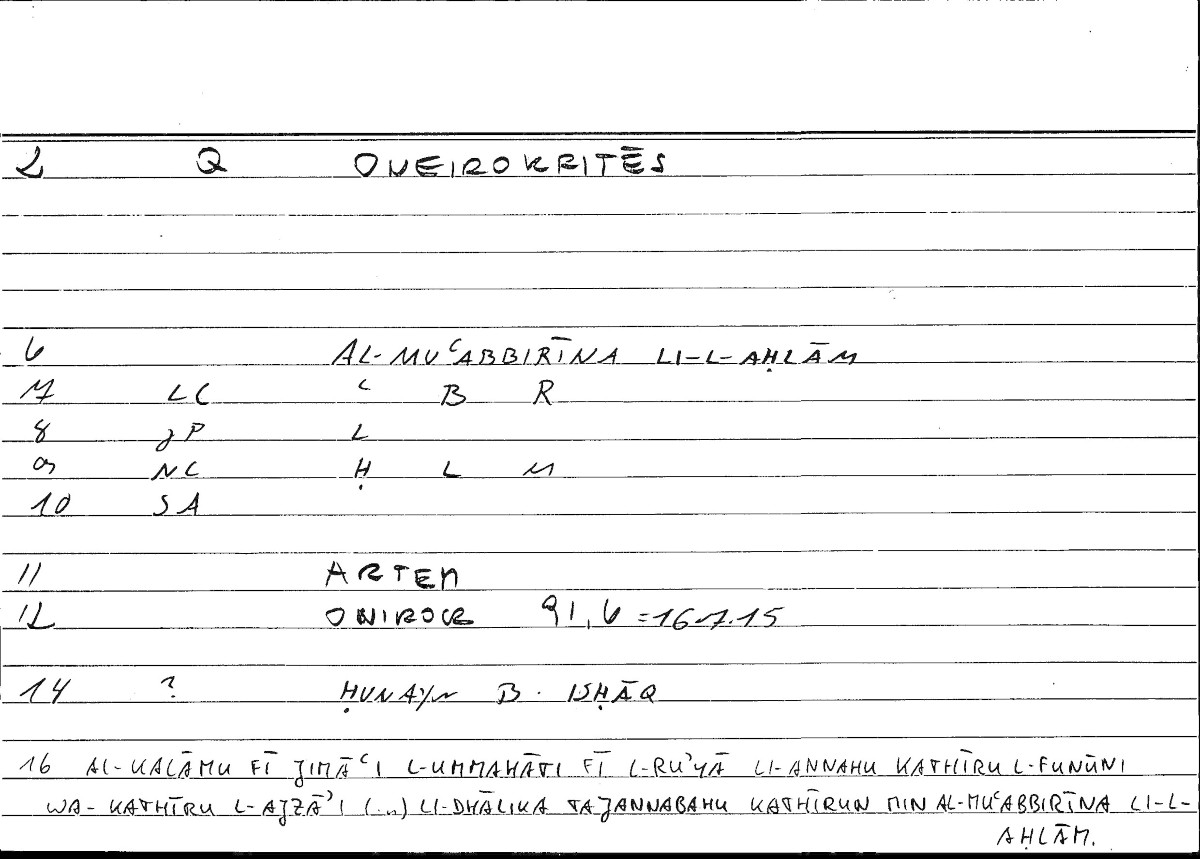 2 Q ONEIROKRITĒS
6 AL-MUʿABBIRĪNA LI-L-AḤLĀM
7 LC ʿ B R
8 JP L
9 NC Ḥ L M
10 SA
11 ARTEM
12 ONIROCR 91,6 = 167.15
14 ? ḤUNAYN B. ISḤĀQ
16 AL-KALĀMU FĪ JIMĀʿI L-UMMAHĀTI FĪ L-RUʾYĀ LI-ANNAHU KATHĪRU L-FUNŪNI
WA-KATHĪRU L-AJZĀʾI (...) LI-DHĀLIKA TAJANNABAHU KATHĪRUN MIN AL-MUʿABBIRĪNA LI-L-
AḤLĀM.